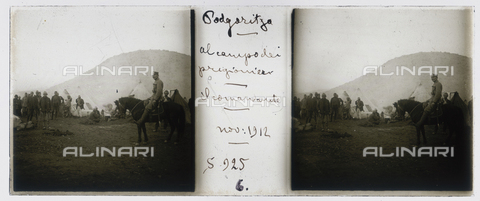 Podgoritza
al campo dei
prigionieri
nov: 1912
S 925
6.
ALINARI
ALINARI
ALINARI
ALINARI